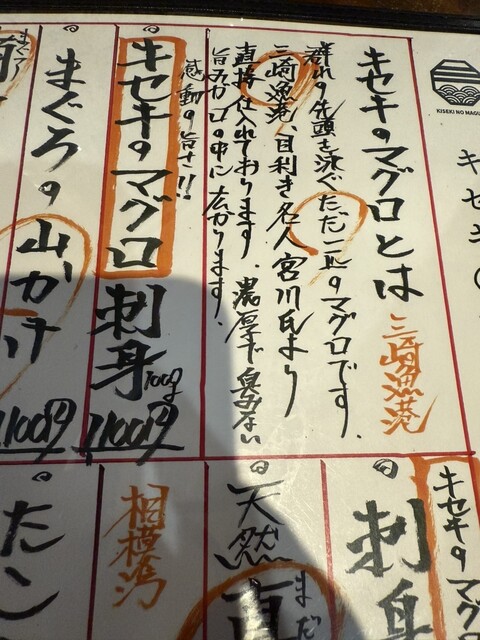 KISEKI NO MAGU
キセキノ
キセキノマグロとは
三崎漁港
群れの先頭を泳ぐただ一匹のマグロです。
三崎漁港、目利き名人宮川氏より
直接仕入れております。濃厚で臭みない
旨みが口の中に広がります。
感動の旨さ!!
キセキノマグロ
刺身100g
1100円
まぐろの山かけ
1100円
まぐろ
キセキノマグ
刺身
天然真
まだ
相模湾
たこ